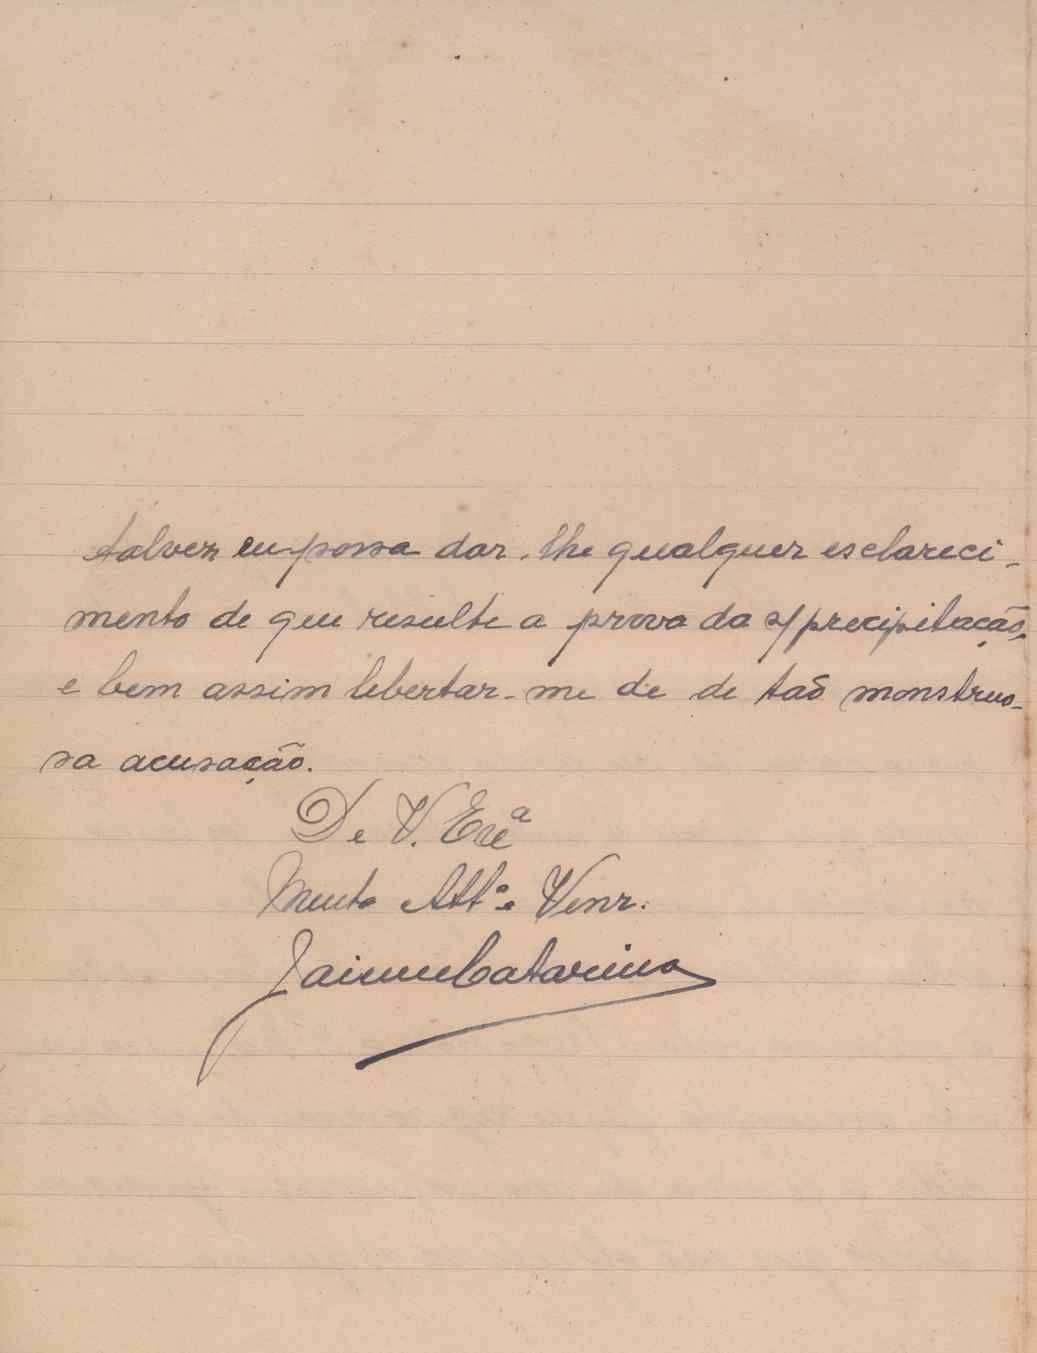 talvez eu possa dar-lhe qualquer esclareci-
mento de que resulte a prova da s/precipitação,
e bem assim libertar-me de de taõ monstruo-
sa acusação.
De V. Exẽª
Muito Attº e Venr.
Jaime Catarino